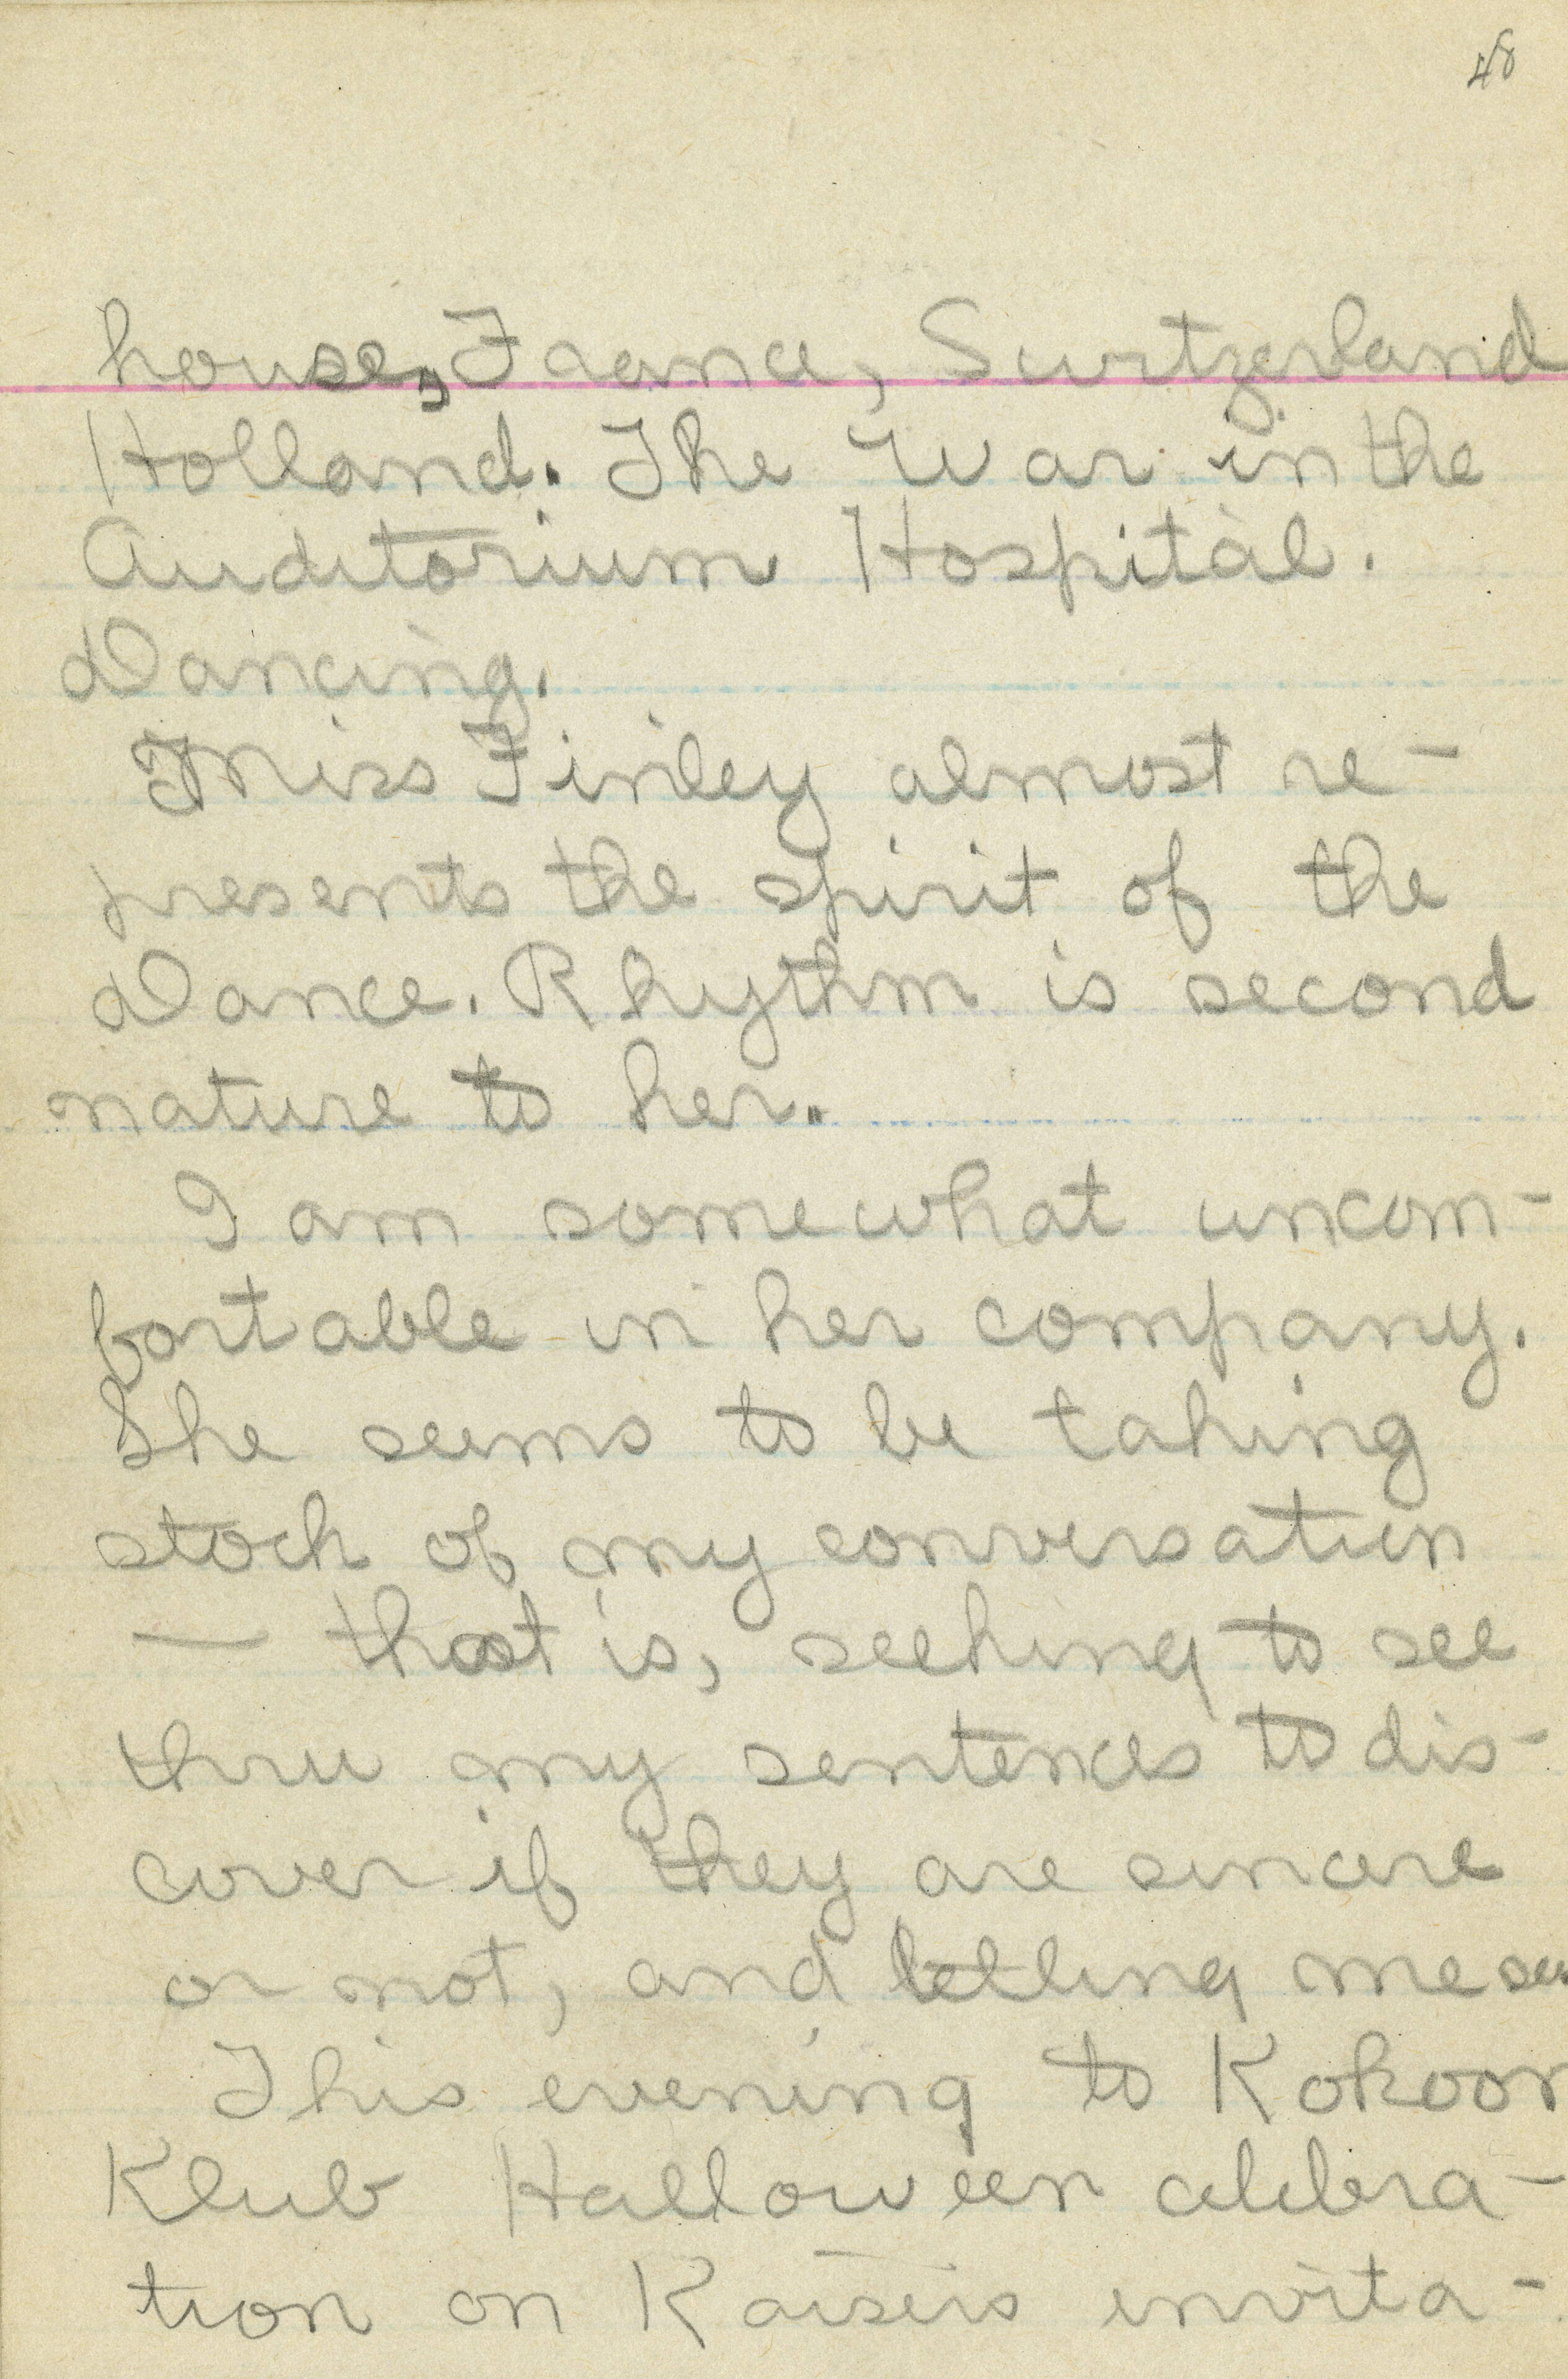 48
house, France, Switzerland
Holland. The War in the
Auditorium Hospital.
Dancing.
Miss Finley almost re-
presents the spirit of the
Dance. Rhythm is second
nature to her.
I am somewhat uncom-
fortable in her company.
She seems to be taking
stock of my conversation
— that is, seeking to see
thru my sentences to dis-
cover if they are sincere
or not, and letting me see
This evening to Kokoon
Klub Halloween celebra-
tion on Kaisers invita-